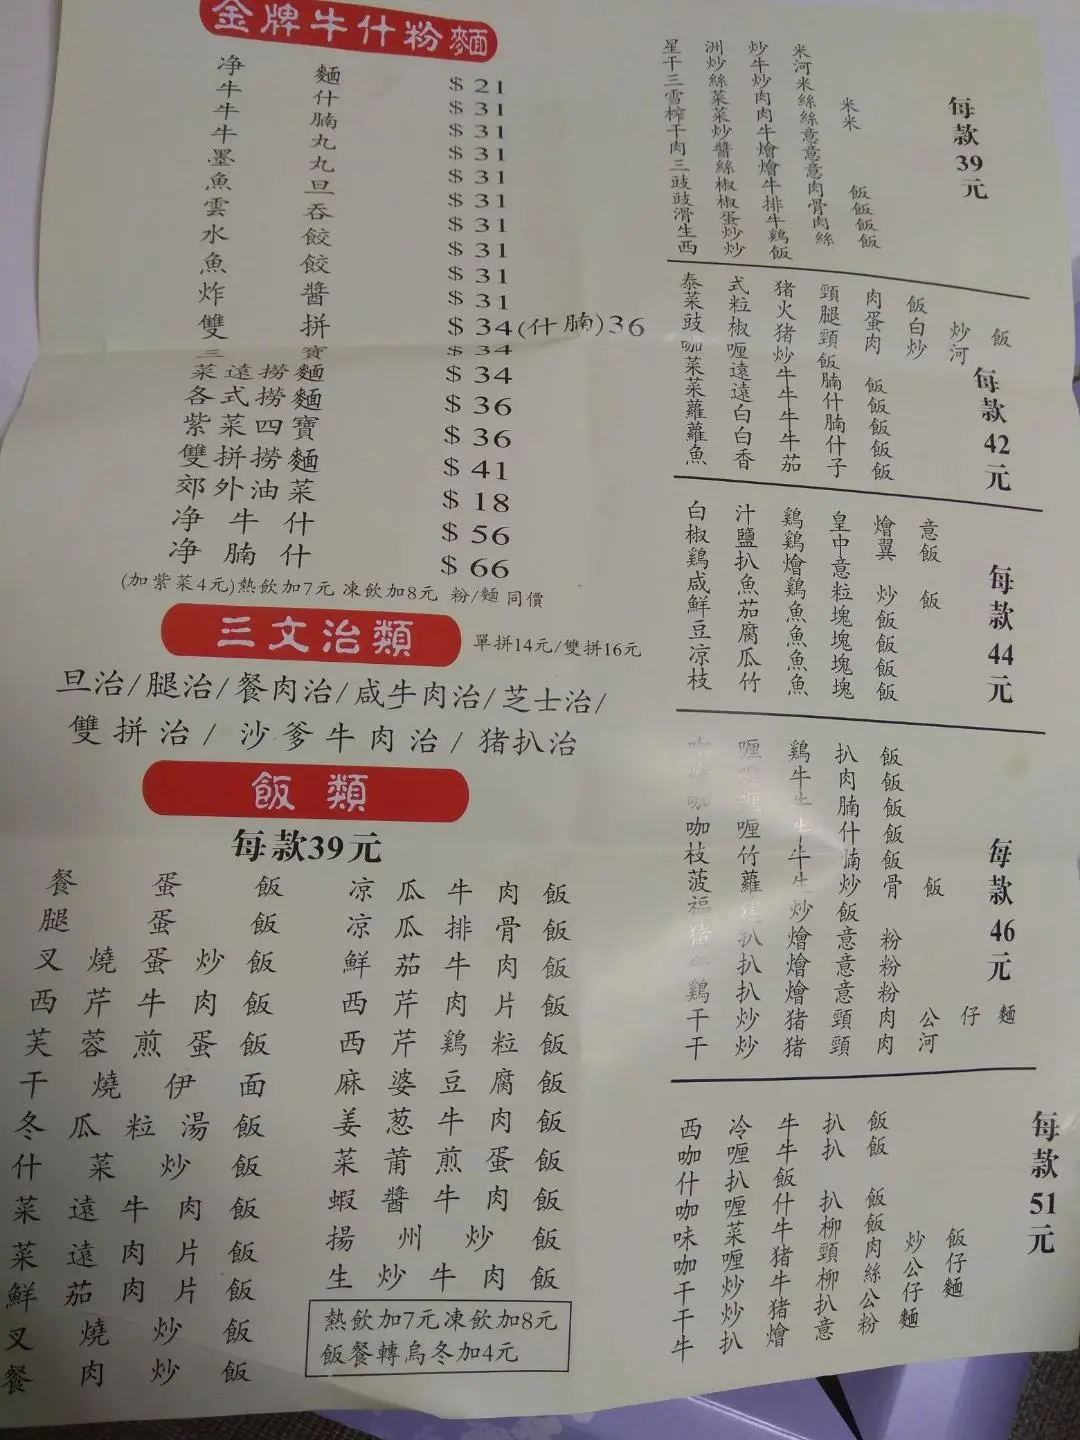 金牌牛什粉麵
净麵 $21
牛什 $31
牛腩 $31
牛丸 $31
墨丸 $31
魚旦 $31
雲吞 $31
水餃 $31
魚餃 $31
炸醬 $31
雙拼 $34(什腩)36
三寶 $34
菜遠撈麵 $34
各式撈麵 $36
紫菜四寶 $36
雙拼撈麵 $41
郊外油菜 $18
净牛什 $56
净腩什 $66
(加紫菜4元)熱飲加7元 凍飲加8元 粉/麵 同價
三文治類 單拼14元/雙拼16元
旦治/腿治/餐肉治/咸牛肉治/芝士治/
雙拼治/沙爹牛肉治/猪扒治
飯類
每款39元
餐蛋飯
腿蛋飯
叉燒蛋炒飯
西芹牛肉飯
芙蓉煎蛋飯
干燒伊面
冬瓜粒湯飯
什菜炒飯
菜遠牛肉飯
菜遠肉片飯
鮮茄肉片飯
叉燒炒飯
餐肉炒飯
凉瓜牛肉飯
凉瓜排骨飯
鮮茄牛肉飯
西芹肉片飯
西芹鷄粒飯
麻婆豆腐飯
姜葱牛肉飯
菜莆煎蛋飯
蝦醬牛肉飯
揚州炒飯
生炒牛肉飯
熱飲加7元凍飲加8元
飯餐轉烏冬加4元
每款39元
星洲炒米
干炒牛河
三絲炒米
雪菜肉絲米
榨菜肉絲米
干炒牛意
肉醬燴意
三絲燴意
豉椒牛肉飯
豉椒排骨飯
滑蛋牛肉飯
生炒鷄絲飯
西炒飯
每款42元
泰式猪頸肉飯
菜粒火腿蛋白炒飯
豉椒猪頸肉炒河
咖喱炒飯
菜遠牛腩飯
菜遠牛什飯
蘿白牛腩飯
蘿白牛什飯
魚香茄子飯
每款44元
白汁鷄皇燴意
椒鹽鷄中翼飯
鷄扒燴意
咸魚鷄粒炒飯
鮮茄魚塊飯
豆腐魚塊飯
凉瓜魚塊飯
枝竹魚塊飯
每款46元
咖喱鷄扒飯
咖喱牛肉飯
咖喱牛腩飯
咖喱牛什飯
枝竹牛腩飯
菠蘿生炒骨飯
福建炒飯
猪扒燴意粉
牛扒燴意粉
鷄扒燴意粉
干炒猪頸肉公仔麵
干炒猪頸肉河
每款51元
西冷牛扒飯
咖喱牛扒飯
什扒飯
咖喱什扒飯
味菜牛柳飯
咖喱猪頸肉炒飯
干炒牛柳絲公仔麵
干炒猪扒公仔麵
牛扒燴意粉